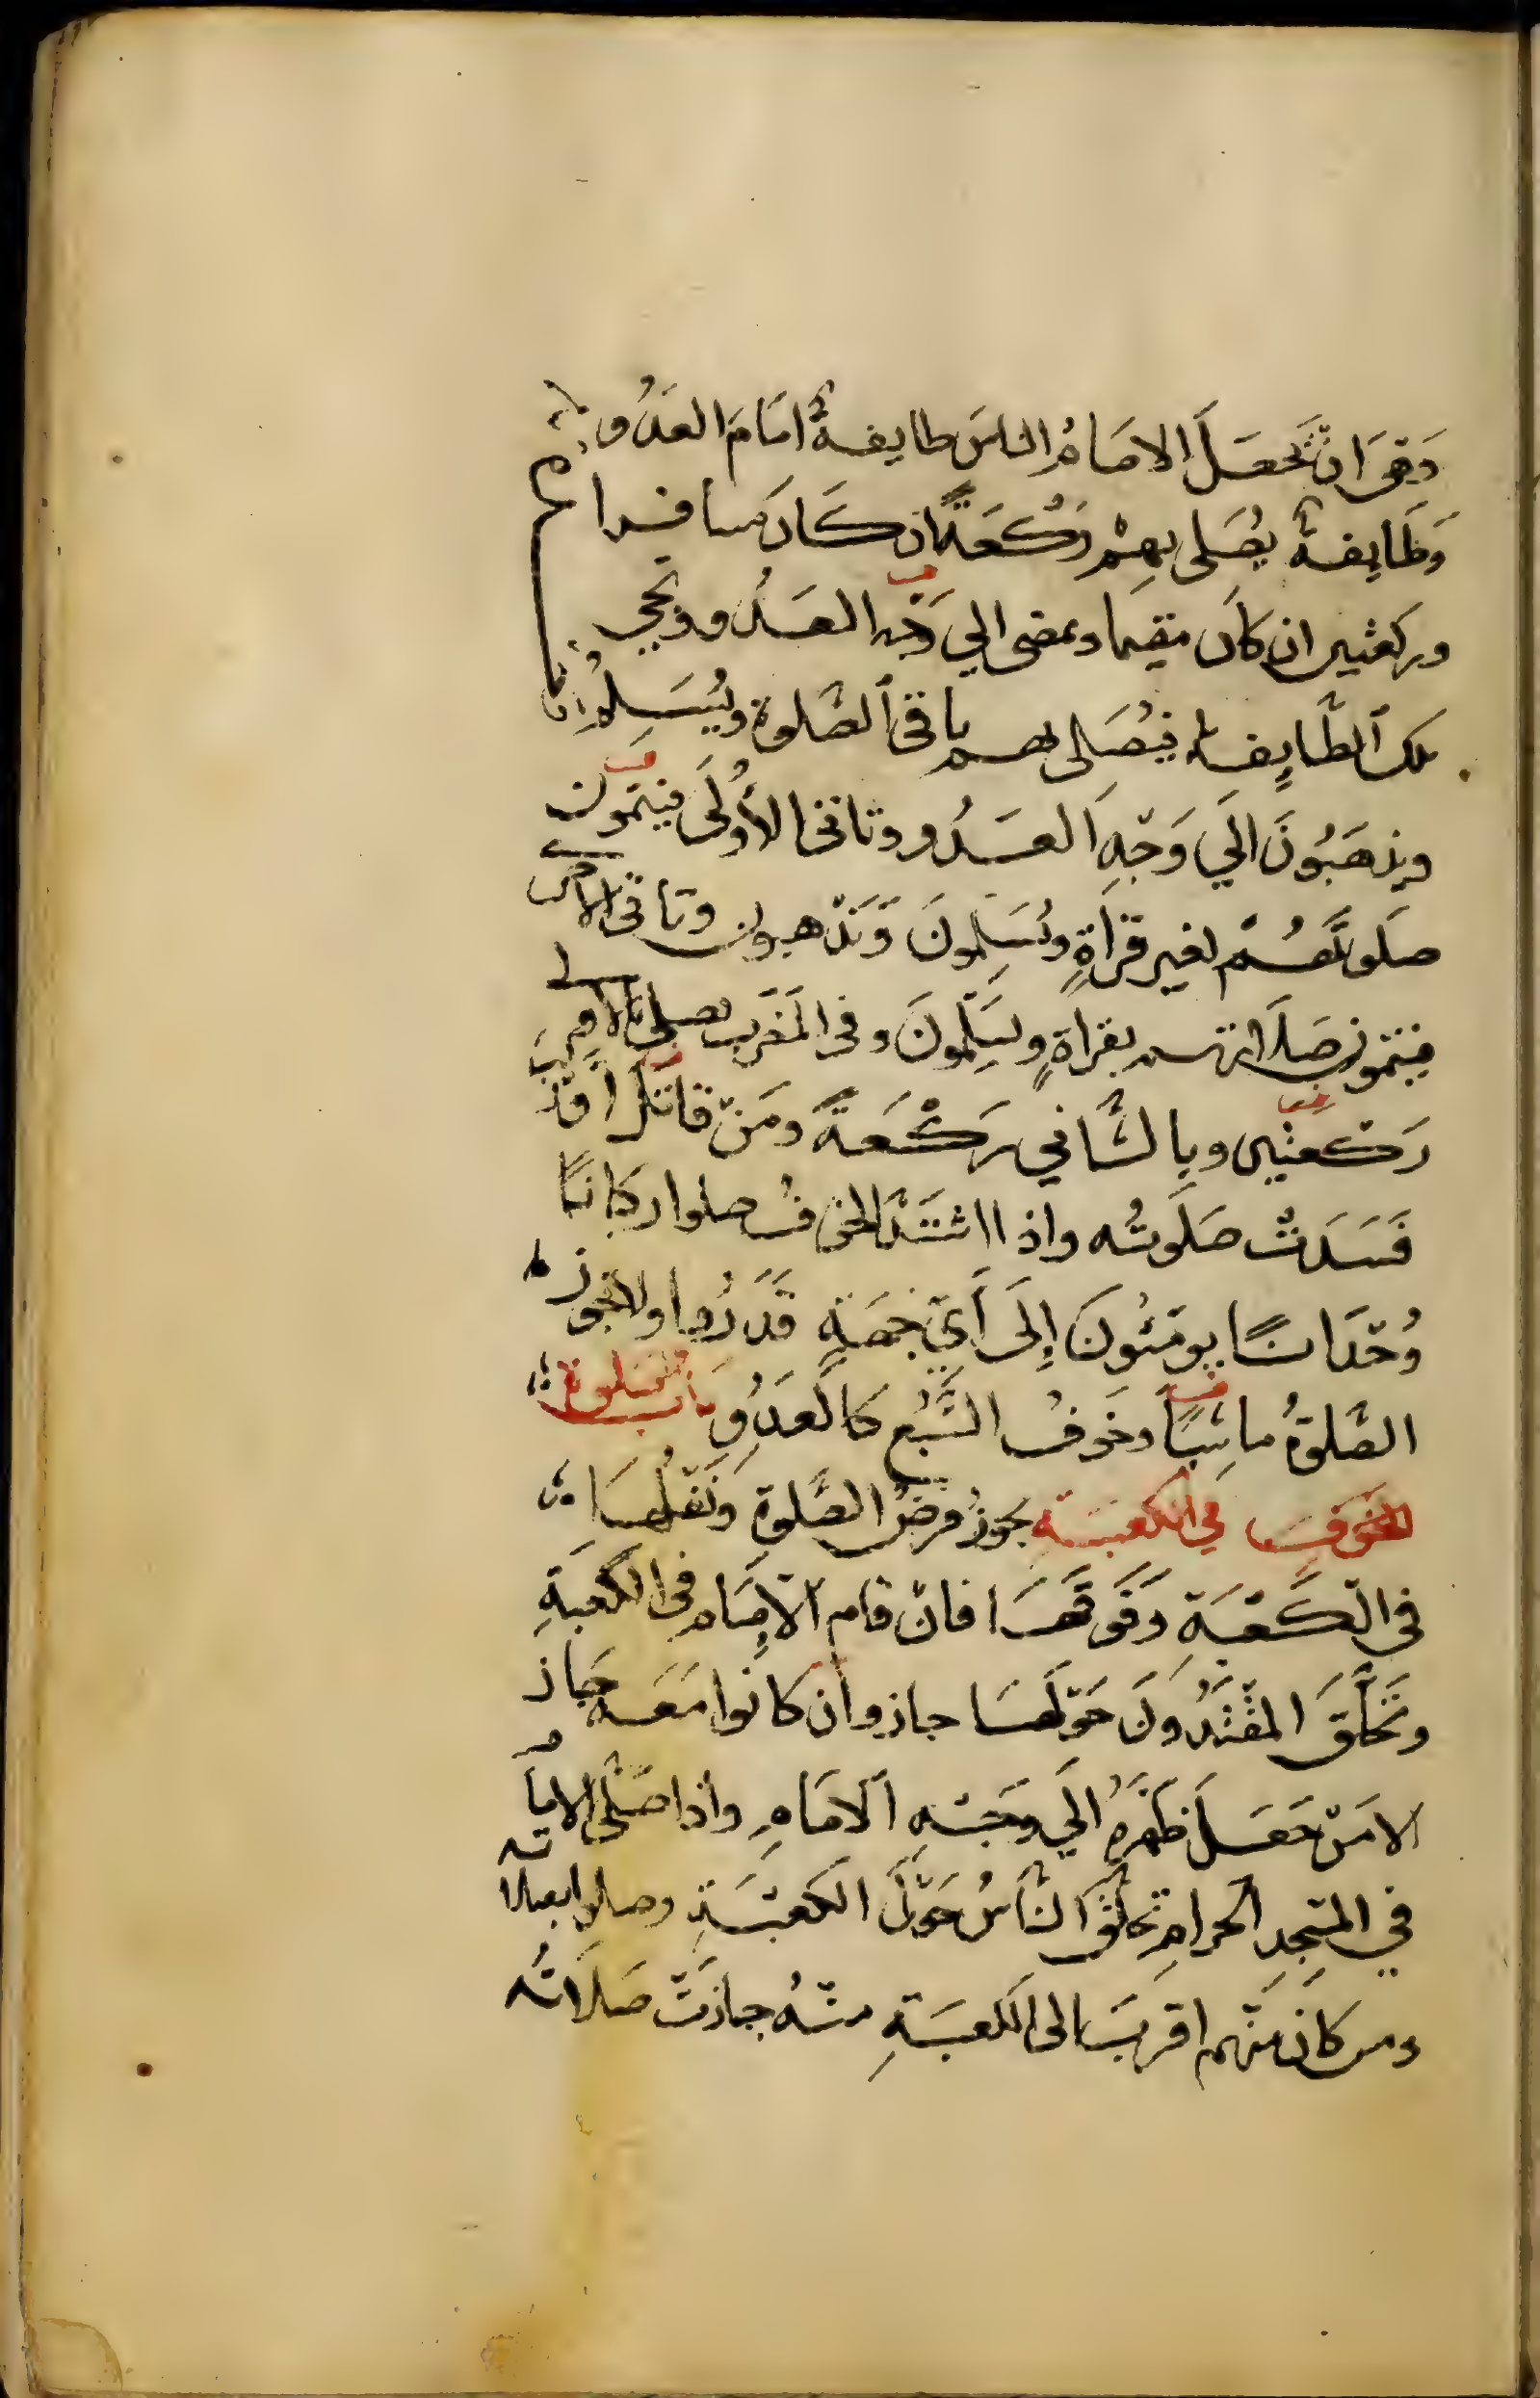 وَهِىَ اَنْ يَجْعَلَ الامَامُ الناسَ طايفةً امَامَ العَدُو
وَطَايفةً يُصَلى بِهِمْ رَكْعَةً ان كَانَ مسافرا
وركعتين ان كَانَ مقيما وتمضى الي وَجْه العَدُو وتجى
تلك الطَّايِفة فيُصَلى بهم باقى الصَّلوة ويُسَلِم
ويذهَبُونَ الَي وَجْهِ العَدُو وتاتى الأُولَى فيتمون
صلَوتَهُمْ بغير قرَاَةٍ ويُسَلِمونَ وَيَذْهبون وتاتى الاخرى
فيتمون صَلَاتهم بقراةٍ ويسَلِّمونَ وفى المَغْرِب يصلى بالاولى
رَكْعتين وبالثَّاني رَكْعَةً ومَنْ قاتل اَوْ رَكِبَ
فَسَدَتْ صَلَوتُه واذا اشْتَدَّ الخوفُ صلوا ركبانًا
وُحْدَانًا يومَئونَ إِلَى اَيّ جِهَةٍ قَدَرُوا ولا تجوز
الصَّلوةُ ماشِيًا وخَوفُ السَّبُعِ كالعَدُوِّ باب صلوة
الخَوفِ في الكعبَةِ يجوزُ فرضُ الصَّلوةِ ونَفْلُهَا
فى الكَعْبَةِ وَفَوقَهَا فان قام الاِمَام فى الكعبَةِ
وتَحَلَّقَ المقْتَدُونَ حَوْلَهَا جاز وان كانوا مَعَه جَاز
الا مَنْ جَعَلَ ظَهْرَهُ الَي وَجْهِ الامَامِ واذا صَلَّى الامام
في المسْجِدِ الحرامِ تحَلَّقَ النَّاسُ حَوْلَ الكَعْبَةِ وصلوا بصلاته
ومن كانَ منْهم اقربَ الى الكعبَةِ منْهُ جازَتْ صَلَاته